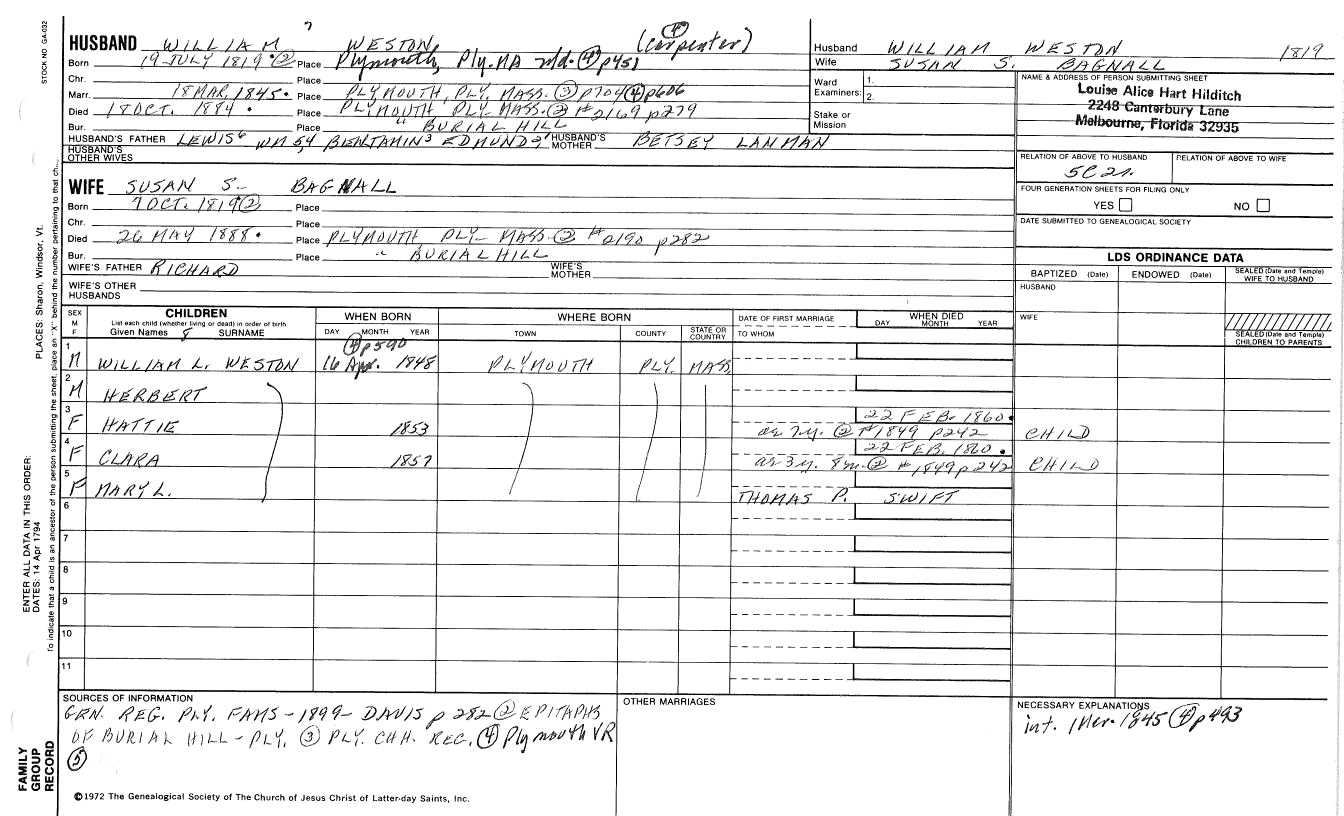 STOCK NO. GA-032
7
HUSBAND WILLIAM WESTON, (carpenter) ④
Born 19 JULY 1819 ② Place Plymouth, Ply. MA ④ p451
Chr. Place
Marr. 18 MAR, 1845. Place PLYMOUTH, PLY, MASS. ③ p704 ④ p606
Died 18 OCT. 1884 . Place PLYMOUTH PLY. MASS. ② #2169 p279
Bur. Place " BURIAL HILL
HUSBAND'S FATHER LEWIS⁶ WM 54, BENJAMIN³ EDMUND² HUSBAND'S MOTHER BETSEY LANMAN
HUSBAND'S OTHER WIVES
WIFE SUSAN S. BAGNALL
Born 7 OCT. 1819 ② Place
Chr. Place
Died 26 MAY 1888. Place PLYMOUTH PLY- MASS ② #2190 p282
Bur. Place " BURIAL HILL
WIFE'S FATHER RICHARD WIFE'S MOTHER
WIFE'S OTHER HUSBANDS
Husband WILLIAM WESTON 1819
Wife SUSAN S. BAGNALL
Ward Examiners: 1. 2.
Stake or Mission
NAME & ADDRESS OF PERSON SUBMITTING SHEET
Louise Alice Hart Hilditch
2248 Canterbury Lane
Melbourne, Florida 32935
RELATION OF ABOVE TO HUSBAND RELATION OF ABOVE TO WIFE
5C2r.
FOUR GENERATION SHEETS FOR FILING ONLY
YES NO
DATE SUBMITTED TO GENEALOGICAL SOCIETY
LDS ORDINANCE DATA
BAPTIZED (Date) ENDOWED (Date) SEALED (Date and Temple) WIFE TO HUSBAND
HUSBAND
WIFE
SEALED (Date and Temple) CHILDREN TO PARENTS
SEX M F CHILDREN WHEN BORN WHERE BORN DATE OF FIRST MARRIAGE WHEN DIED
List each child (whether living or dead) in order of birth
Given Names 8 SURNAME DAY MONTH YEAR TOWN COUNTY STATE OR COUNTRY TO WHOM DAY MONTH YEAR
④ p590
1 M WILLIAM L. WESTON 16 Apr. 1848 PLYMOUTH PLY. MASS
2 M HERBERT
22 FEB. 1860.
3 F HATTIE 1853 as 7y. ② #1849 p242 CHILD
22 FEB. 1860.
4 F CLARA 1857 as 3y. 8m. ② #1849 p242 CHILD
5 F MARY L. THOMAS P. SWIFT
6
7
8
9
10
11
SOURCES OF INFORMATION
GEN. REG. PLY. FAMS - 1899 - DAVIS p 282 ② EPITAPHS
OF BURIAL HILL - PLY. ③ PLY. CHH. REC. ④ Plymouth VR
⑤
OTHER MARRIAGES
NECESSARY EXPLANATIONS
int. 1 Mar. 1845 ④ p493
©1972 The Genealogical Society of The Church of Jesus Christ of Latter-day Saints, Inc.
FAMILY GROUP RECORD
ENTER ALL DATA IN THIS ORDER:
DATES: 14 Apr 1794
PLACES: Sharon, Windsor, Vt.
To indicate that a child is an ancestor of the person submitting the sheet, place an "X" behind the number pertaining to that ch